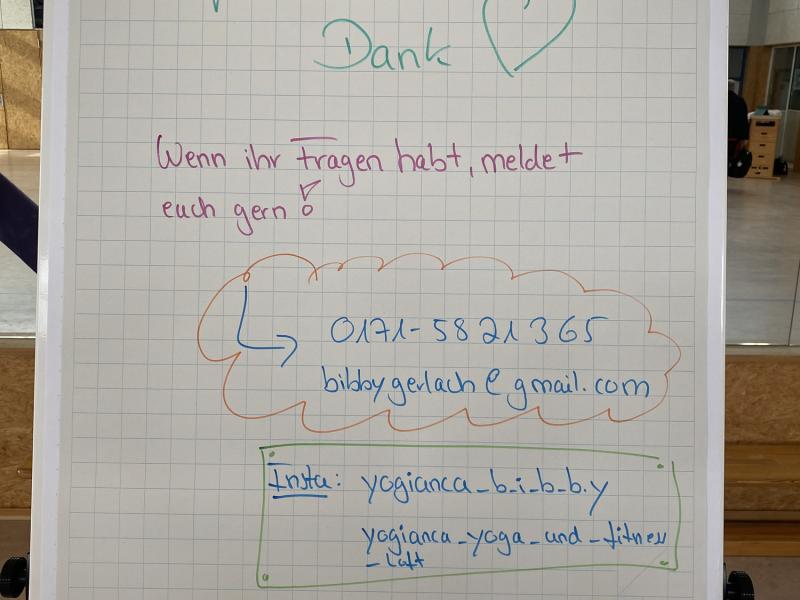 Dank
Wenn ihr Fragen habt, meldet
euch gern!
0171-5821365
bibbygerlach@gmail.com
Insta: yogianca_b_i_b_b_y
yogianca_yoga_und_fitness
_loft